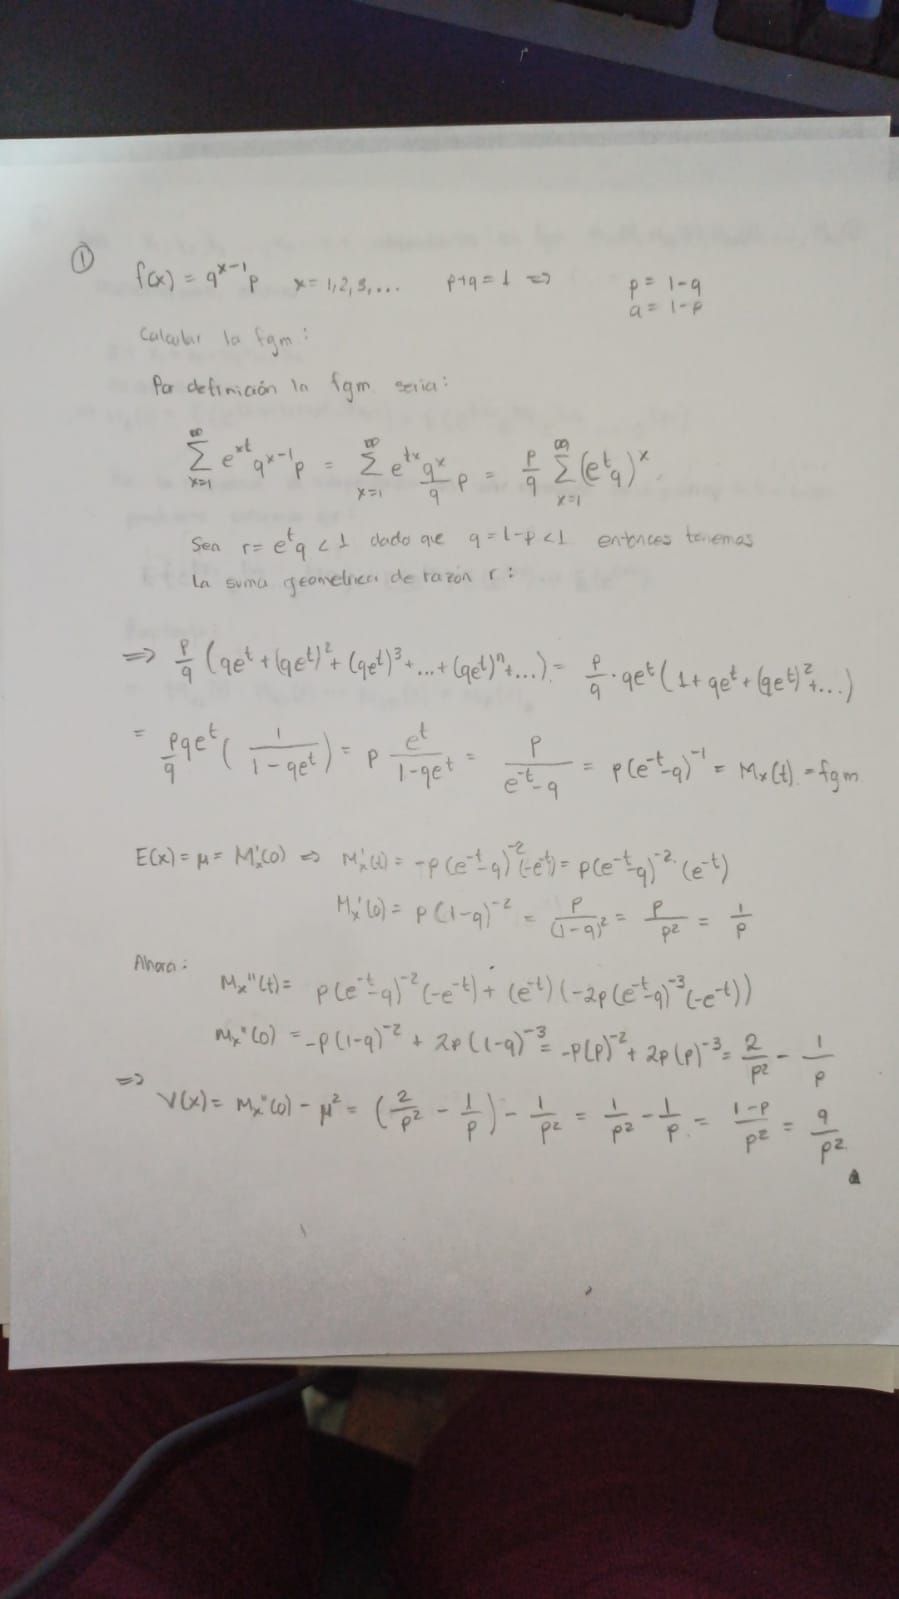 ①
f(x) = q^{x-1} p    x = 1,2,3,...    p+q = 1 ⇒    p = 1-q
q = 1-p
Calcular la fgm:
Por definición la fgm. seria:
∑_{x=1}^{∞} e^{xt} q^{x-1} p = ∑_{x=1}^{∞} e^{tx} \frac{q^x}{q} p = \frac{p}{q} ∑_{x=1}^{∞} (e^t q)^x.
Sea r = e^t q < 1 dado que q = 1-p < 1 entonces tenemos
la suma geometrica de razón r:
⇒ \frac{p}{q} (qe^t + (qe^t)^2 + (qe^t)^3 + ... + (qe^t)^n + ...) = \frac{p}{q} · qe^t (1 + qe^t + (qe^t)^2 + ...)
= \frac{pqe^t}{q} (\frac{1}{1-qe^t}) = p \frac{e^t}{1-qe^t} = \frac{p}{e^{-t}-q} = p(e^{-t}-q)^{-1} = M_x(t) = fgm
E(x) = μ = M_x'(0) ⇒ M_x'(t) = -p(e^{-t}-q)^{-2}(-e^{-t}) = p(e^{-t}-q)^{-2}(e^{-t})
M_x'(0) = p(1-q)^{-2} = \frac{p}{(1-q)^2} = \frac{p}{p^2} = \frac{1}{p}
Ahora:
M_x''(t) = p(e^{-t}-q)^{-2}(-e^{-t}) + (e^{-t})(-2p(e^{-t}-q)^{-3}(-e^{-t}))
M_x''(0) = -p(1-q)^{-2} + 2p(1-q)^{-3} = -p(p)^{-2} + 2p(p)^{-3} = \frac{2}{p^2} - \frac{1}{p}
⇒ V(x) = M_x''(0) - μ^2 = (\frac{2}{p^2} - \frac{1}{p}) - \frac{1}{p^2} = \frac{1}{p^2} - \frac{1}{p} = \frac{1-p}{p^2} = \frac{q}{p^2}.